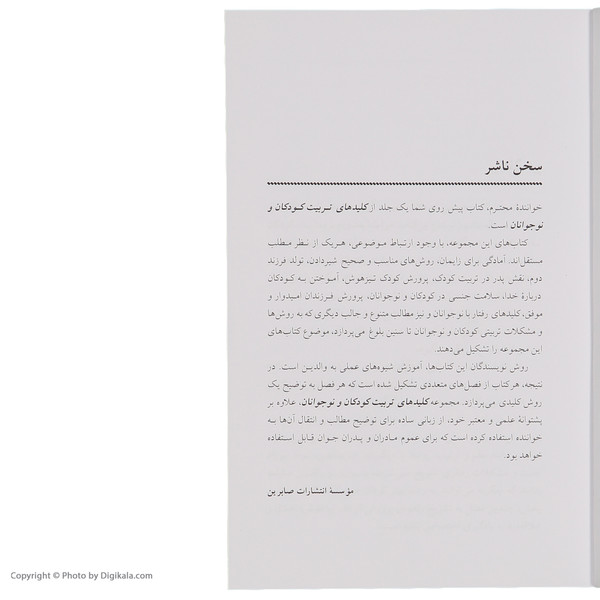 سخن ناشر
خوانندهٔ محترم، کتاب پیش روی شما یک جلد از کلیدهای تربیت کودکان و
نوجوانان است.
کتاب‌های این مجموعه، با وجود ارتباط موضوعی، هریک از نظر مطلب
مستقل‌اند. آمادگی برای زایمان، روش‌های مناسب و صحیح شیردادن، تولد فرزند
دوم، نقش پدر در تربیت کودک، پرورش کودک تیزهوش، آموختن به کودکان
دربارهٔ خدا، سلامت جنسی در کودکان و نوجوانان، پرورش فرزندان امیدوار و
موفق، کلیدهای رفتار با نوجوانان و نیز مطالب متنوع و جالب دیگری که به روش‌ها
و مشکلات تربیتی کودکان و نوجوانان تا سنین بلوغ می‌پردازد، موضوع کتاب‌های
این مجموعه را تشکیل می‌دهند.
روش نویسندگان این کتاب‌ها، آموزش شیوه‌های عملی به والدین است. در
نتیجه، هر کتاب از فصل‌های متعددی تشکیل شده است که هر فصل به توضیح یک
روش کلیدی می‌پردازد. مجموعه کلیدهای تربیت کودکان و نوجوانان، علاوه بر
پشتوانهٔ علمی و معتبر خود، از زبانی ساده برای توضیح مطالب و انتقال آن‌ها به
خواننده استفاده کرده است که برای عموم مادران و پدران جوان قابل استفاده
خواهد بود.
مؤسسهٔ انتشارات صابرین
Copyright © Photo by Digikala.com